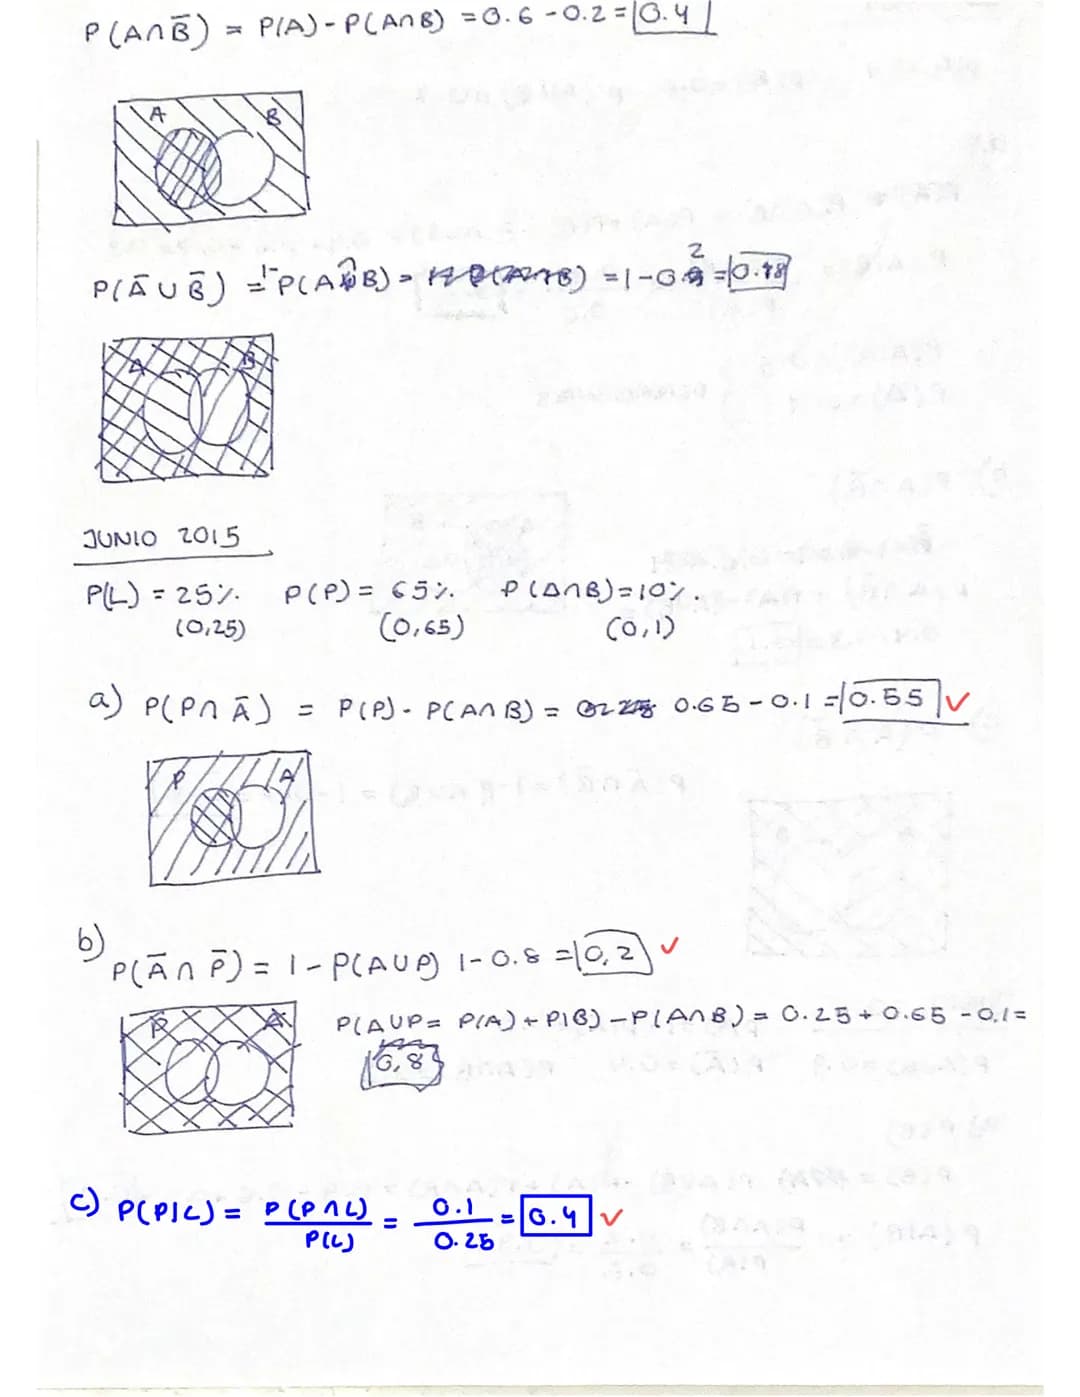 P(A∩B̄) = P(A)-P(A∩B) = 0.6-0.2 = 0.4
A B
P(Ā∪B̄) = 1-P(A∩B) = 1-0.2 =
A B
JUNIO 2015
P(L) = 25%. P(P) = 65%. P(A∩B)=10%.
(0,25) (0,65) (0,1)
a) P(P∩Ā) = P(P)- P(A∩B) = 0.65-0.1 = 0.55 ✓
P A
b)
P(Ā∩P̄) = 1-P(A∪P) 1-0.8 = 0,2 ✓
P A
P(A∪P= P(A)+P(B)-P(A∩B) = 0.25+0.65-0.1=
0,8
c) P(P|L) = P(P∩L)/P(L) = 0.1/0.25 = 0.4 ✓